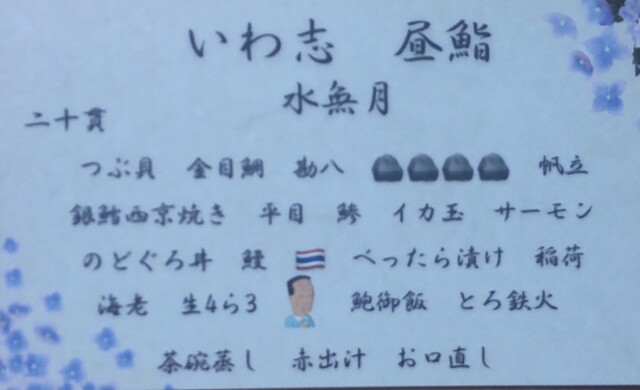 いわ志 昼鮨
水無月
二十貫
つぶ貝 金目鯛 勘八 帆立
銀鱈西京焼き 平目 鯵 イカ玉 サーモン
のどぐろ丼 鰻 べったら漬け 稲荷
海老 生4ら3 鮑御飯 とろ鉄火
茶碗蒸し 赤出汁 お口直し